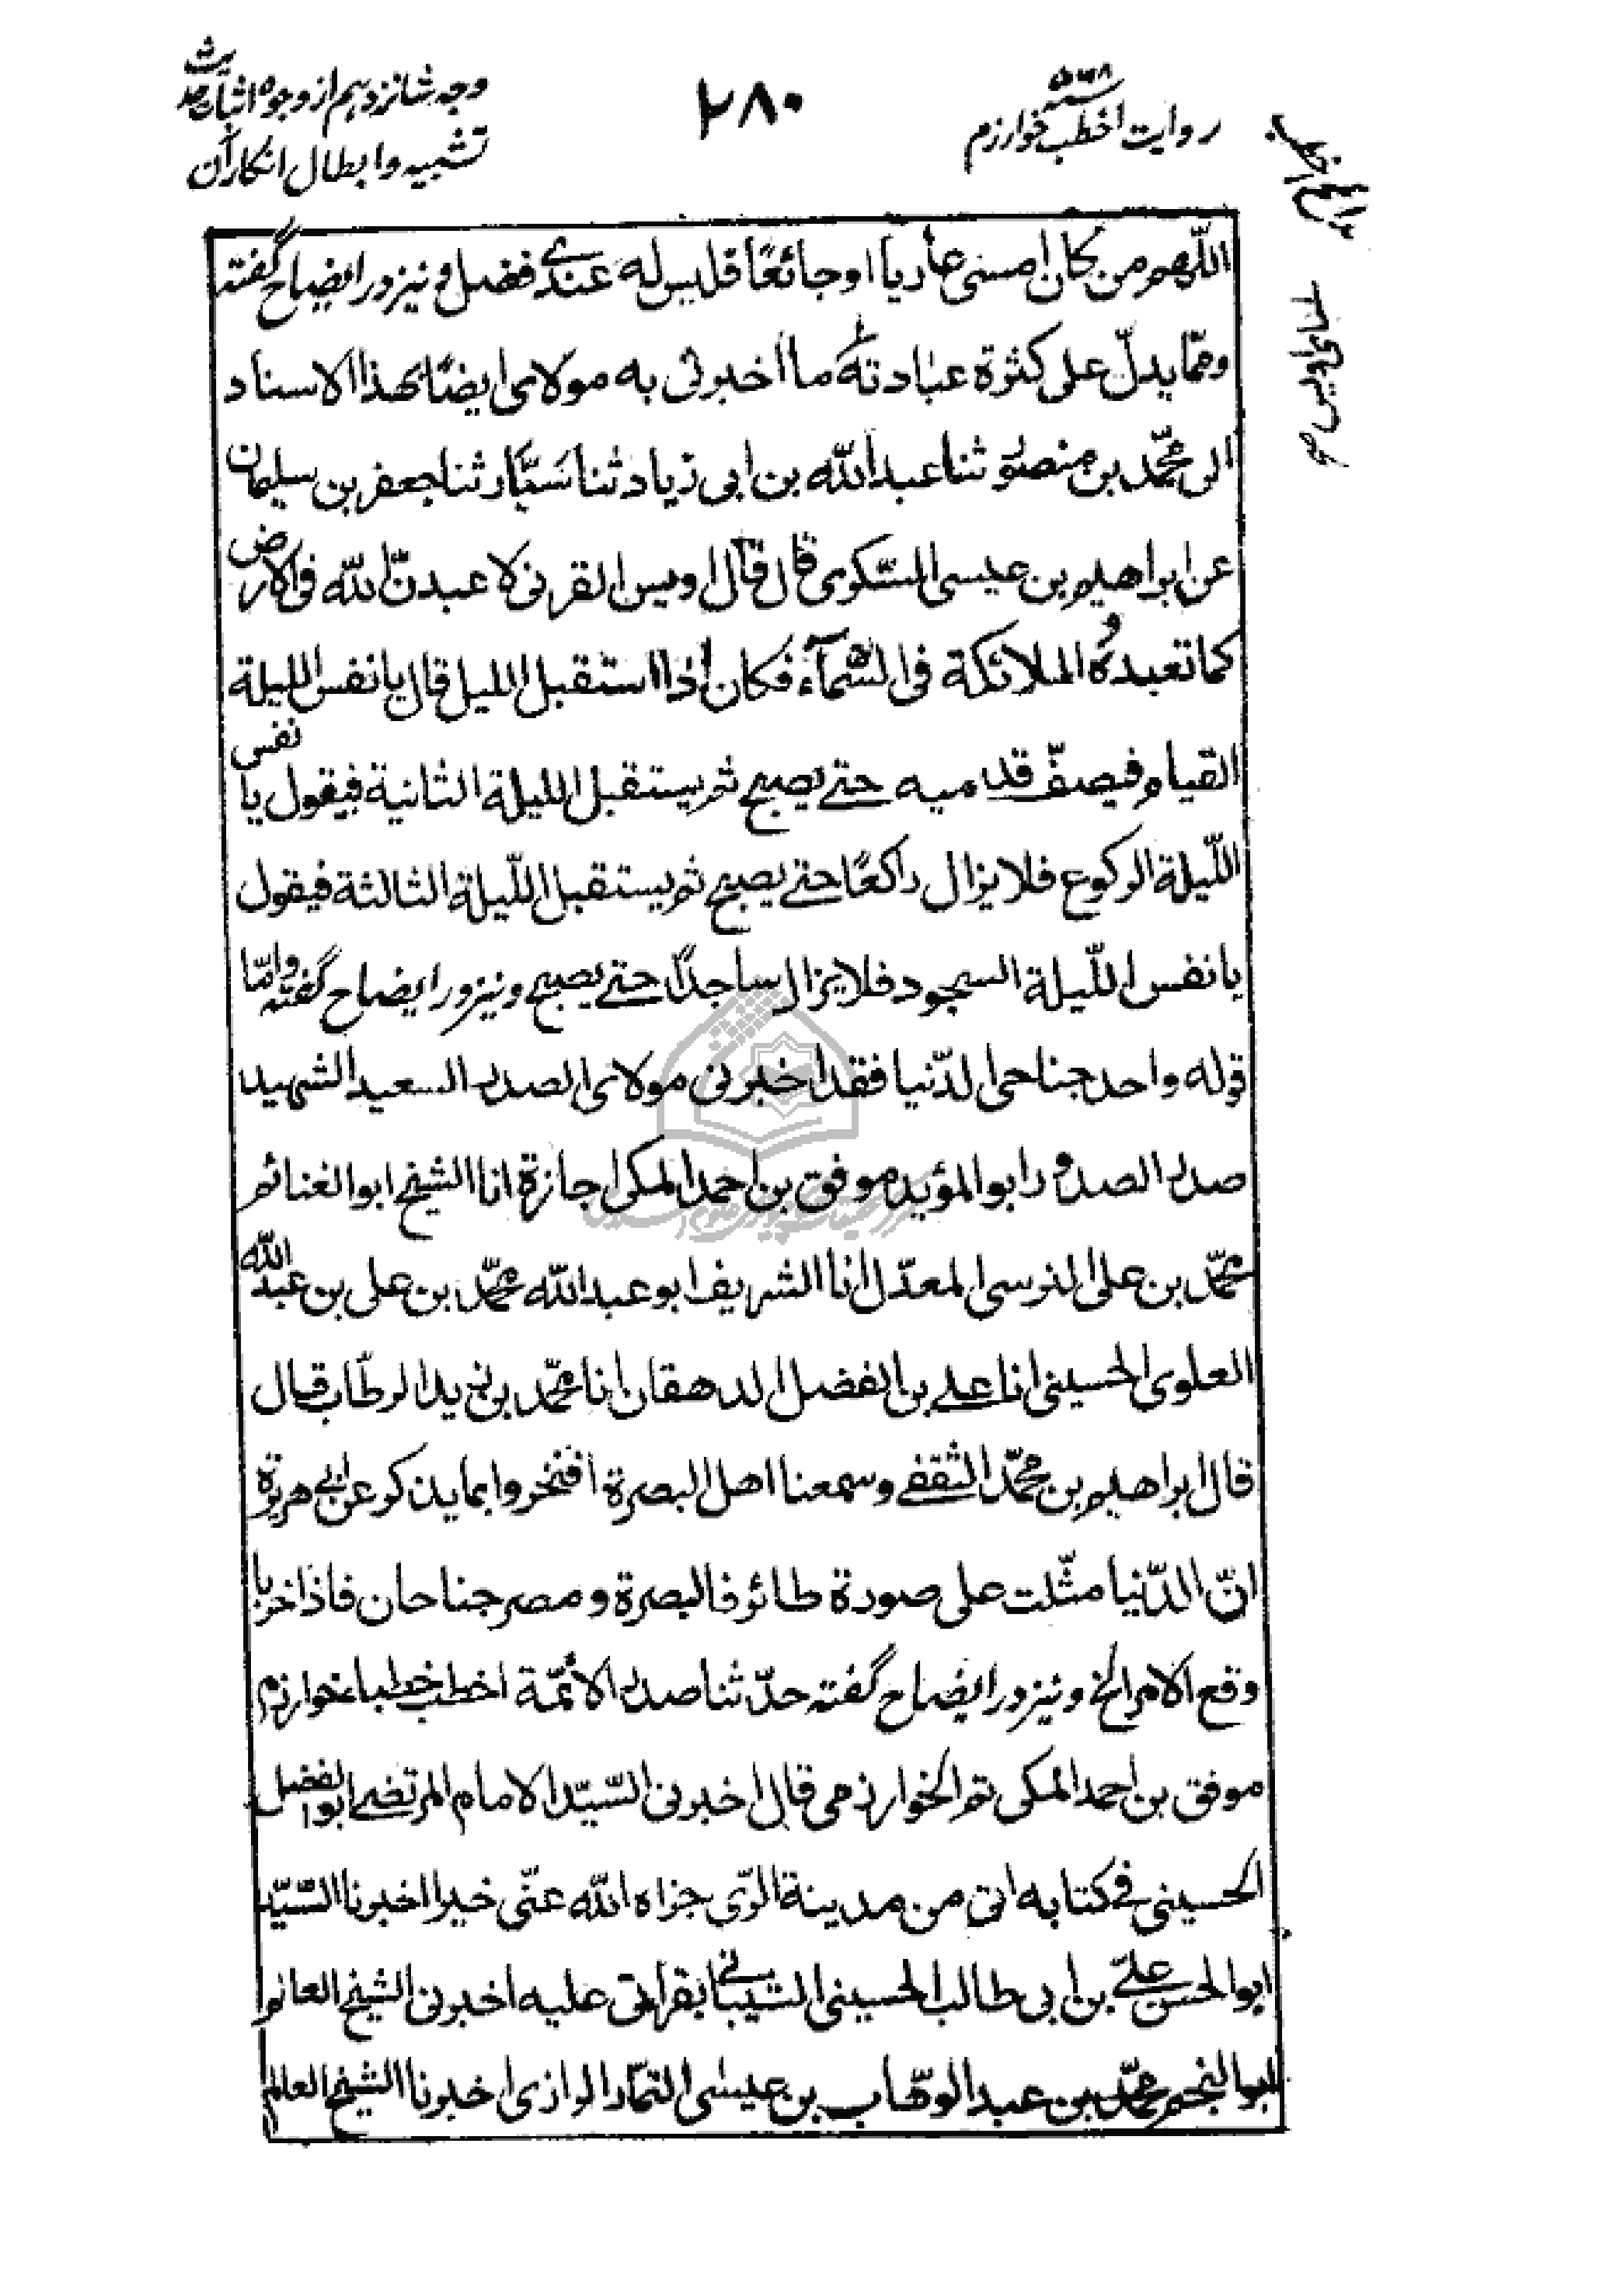 روايت اخطب خوارزم
٢٨٠
وجه شانزدهم از وجوه اثبات حديث
تشبيه و ابطال انكار آن
اللّهم من كان امسى عاريا او جائعًا فليس له عندے فضل و نيز در ايضاح گفته
و ممّا يدلّ على كثرة عبادته ما اخبرنى به مولاى ايضًا بهذا الاسناد
الى محمّد بن منصور ثنا عبد اللّه بن ابى زياد ثنا سَيَّار ثنا جعفر بن سليمان
عن ابراهيم بن عيسى السّكرى قال قال اويس القرنى لاعبدنّ اللّه فى الارض
كما تعبده الملائكة فى السّمآء فكان اذا استقبل الليل قال يا نفس الليلة
القيام فيصفّ قدميه حتے يصبح ثم يستقبل الليلة الثانية فيقول يا نفس
اللّيلة الركوع فلا يزال راكعًا حتے يصبح ثم يستقبل اللّيلة الثالثة فيقول
يا نفس اللّيلة السجود فلا يزال ساجدًا حتے يصبح و نيز در ايضاح گفته و امّا
قوله واحد جناحى الدّنيا فقد اخبرنى مولاى الصدر السعيد الشهيد
صدر الصدور ابو المؤيد موفق بن احمد المكى اجازة انا الشيخ ابو الغنائم
محمّد بن على النرسى المعدّل انا الشريف ابو عبد اللّه محمّد بن على بن عبد اللّه
العلوى الحسينى انا علے بن الفضل الدهقان انا محمّد بن زيد الرطّاب قال
قال ابراهيم بن محمّد الثقفے و سمعنا اهل البصرة افتخروا بما يذكر عن ابى هريرة
انّ الدّنيا مثّلت على صورة طائر فالبصرة و مصر جناحان فاذا خربا
وقع الامر الخ و نيز در ايضاح گفته حدّثنا صدر الائمّة اخطب خطباء خوارزم
موفق بن احمد المكى ثم الخوارزمى قال اخبرنى السّيّد الامام المرتضے ابو الفضل
الحسينى فے كتابه اتى من مدينة الرّى جزاه اللّه عنّى خيرا اخبرنا السّيّد
ابو الحسن علے بن ابى طالب الحسينى الشيبانے بقراتى عليه اخبرنى الشيخ العالم
ابو النجم محمّد بن عبد الوهّاب بن عيسى التمّار الرازى اخبرنا الشيخ العالم